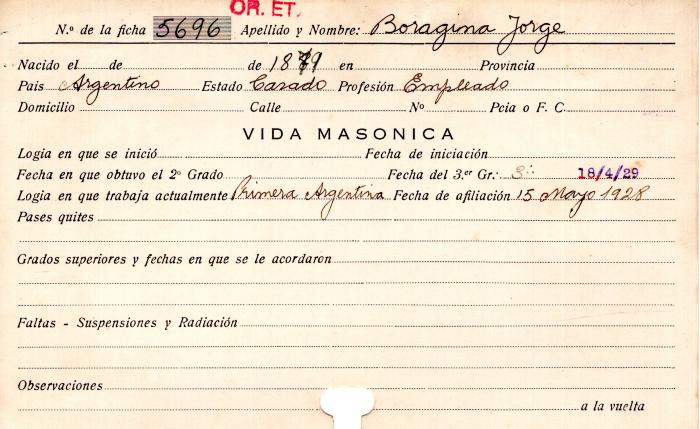 OR. ET.
N.º de la ficha 5696 Apellido y Nombre: Boragina Jorge
Nacido el de de 1879 en Provincia
Pais Argentino Estado Casado Profesión Empleado
Domicilio Calle Nº Pcia o F. C.
VIDA MASONICA
Logia en que se inició Fecha de iniciación
Fecha en que obtuvo el 2º Grado Fecha del 3.er Gr.: 3∴ 18/4/29
Logia en que trabaja actualmente Primera Argentina Fecha de afiliación 15 Mayo 1928
Pases quites
Grados superiores y fechas en que se le acordaron
Faltas - Suspensiones y Radiación
Observaciones
a la vuelta